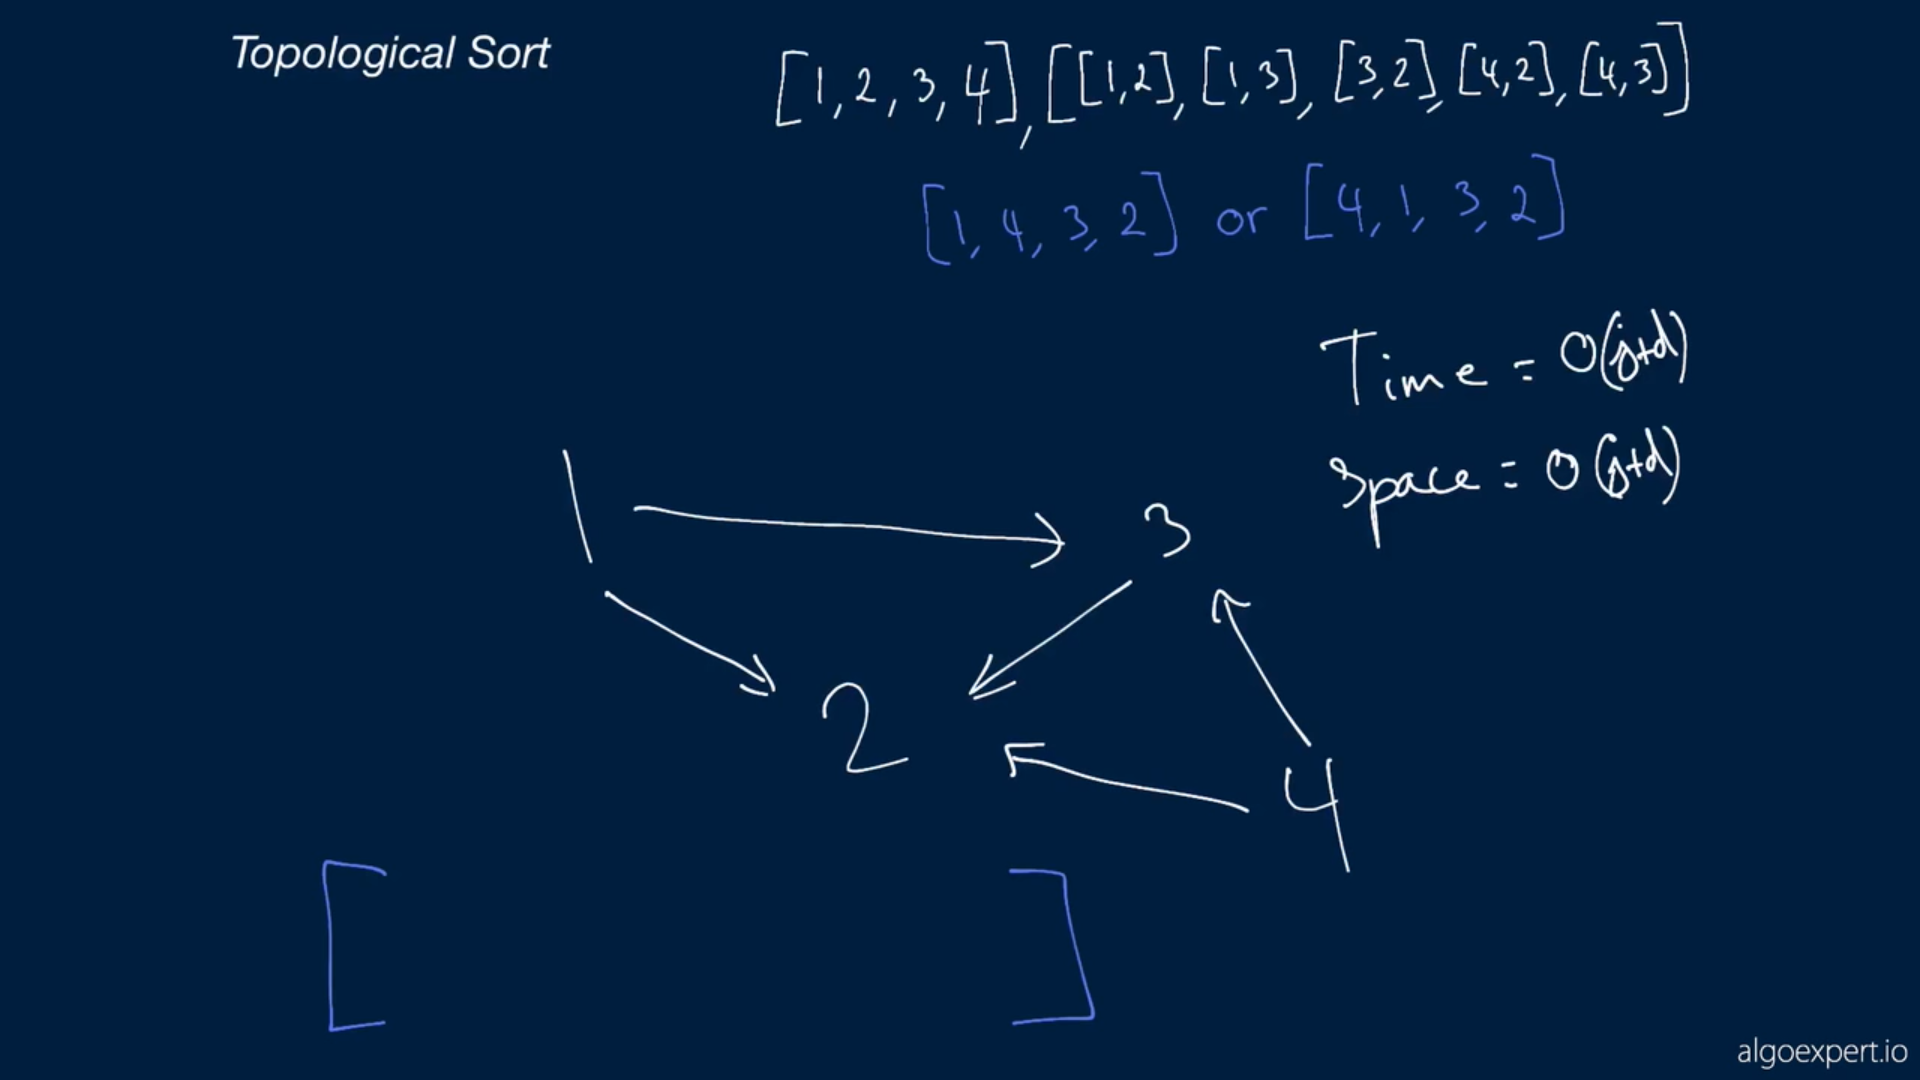 Topological Sort
[1, 2, 3, 4], [[1,2], [1,3], [3,2], [4,2], [4,3]]
[1, 4, 3, 2] or [4, 1, 3, 2]
Time = O(j+d)
Space = O(j+d)
1
3
2
4
[ ]
algoexpert.io